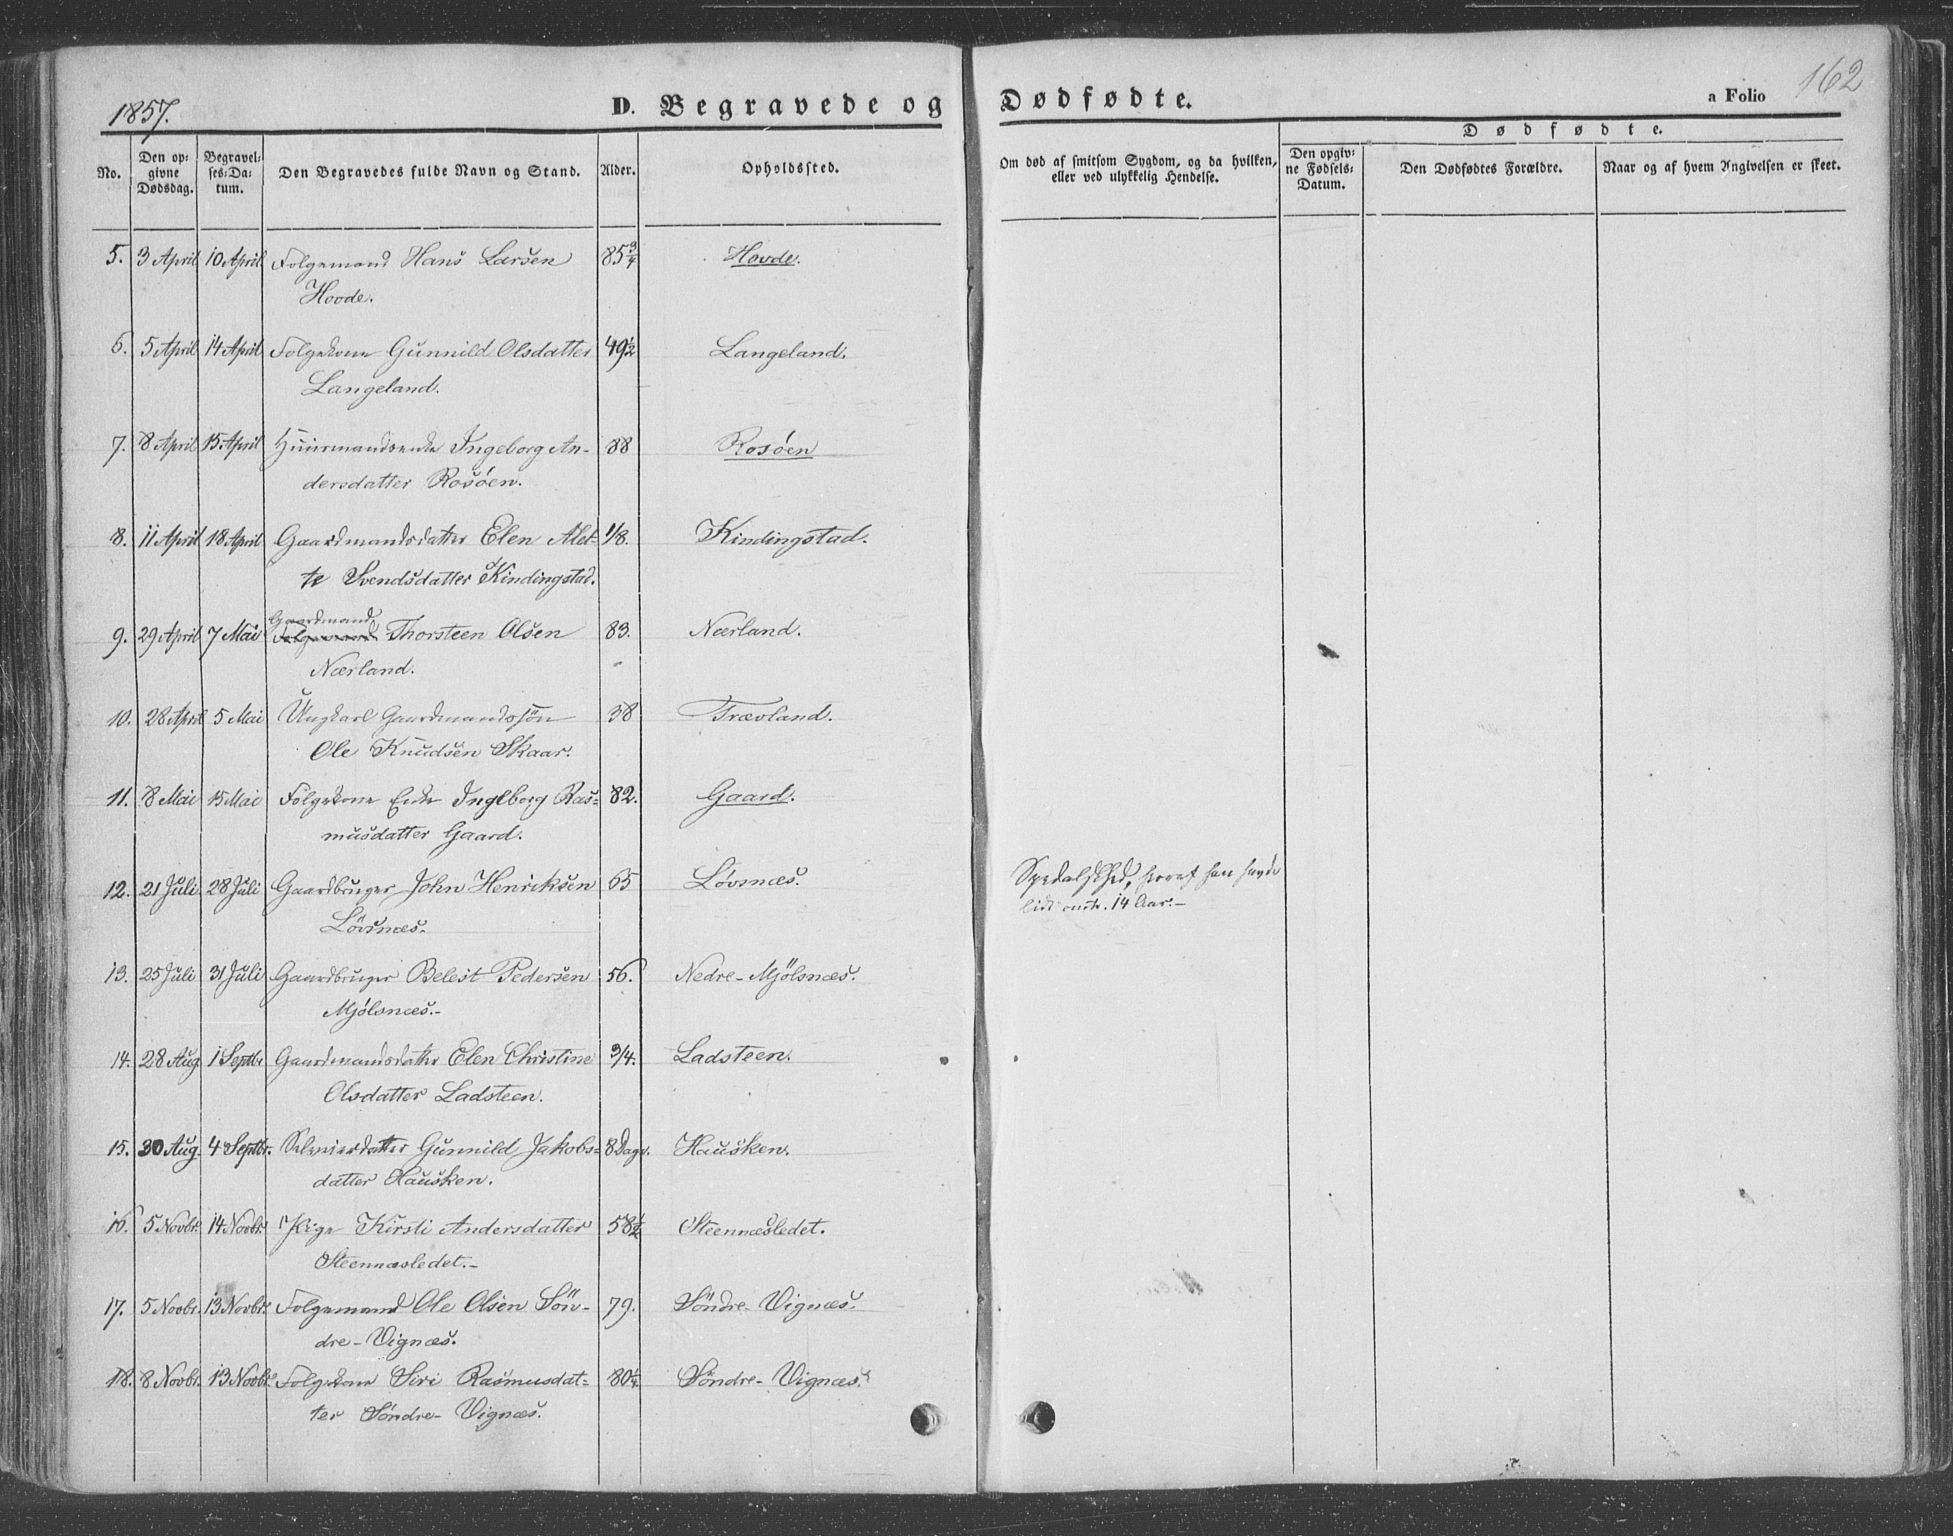 1857.
D. Begravede og
Dødfødte.
a Folio 162
No.
Den op-
givne
Dødsdag.
Begravel-
ses-Da-
tum.
Den Begravedes fulde Navn og Stand.
Alder.
Opholdssted.
Om død af smitsom Sygdom, og da hvilken,
eller ved ulykkelig Hendelse.
Dødfødte.
Den opgiv-
ne Fødsels-
Datum.
Den Dødfødtes Forældre.
Naar og af hvem Angivelsen er skeet.
5. 3 April 10 April Folgemand Hans Larsen 85 3/4 Hovde.
Hovde.
6. 5 April 14 April Folgekone Gunnild Olsdatter 49 1/2 Langeland.
Langeland.
7. 8 April 15 April Huusmandsenke Ingeborg An- 88 Rosöen
dersdatter Rosöen.
8. 11 April 18 April Gaardmandsdatter Elen Alet- 1/8. Kindingstad.
te Svendsdatter Kindingstad.
Gaardmand
9. 29 April 7 Mai Folgemand Thorsteen Olsen 83. Nærland.
Nærland.
10. 28 April 5 Mai Ungkarl Gaardmandssön 38 Trævland.
Ole Knudsen Skaar.
11. 8 Mai 15 Mai Folgekone Enke Ingeborg Ras- 82. Gaard.
musdatter Gaard.
12. 21 Juli 28 Juli Gaardbruger John Henriksen 65 Lövsnæs. Spedalskhed, hvoraf han havde
Lövsnæs. lidt omtr. 14 Aar.-
13. 25 Juli 31 Juli Gaardbruger Belest Pedersen 56. Nedre-Mjölsnæs.
Mjölsnæs.-
14. 28 Aug 1 Septbr Gaardmandsdatter Elen Christine 3/4. Ladsteen.
Olsdatter Ladsteen.
15. 30 Aug. 4 Septbr. Gunnild Jakobs- 8 Dage. Hausken.
datter Hausken.
16. 5 Novbr. 14 Novbr. Pige Kirsti Andersdatter 58 1/2 Steennæsledet.
Steennæsledet.-
17. 5 Novbr. 13 Novbr. Folgemand Ole Olsen Sön- 79. Söndre-Vignæs.
dre-Vignæs.
18. 8 Novbr. 13 Novbr. Folgekone Siri Rasmusdat- 80 1/4. Söndre-Vignæs.
ter Söndre-Vignæs.